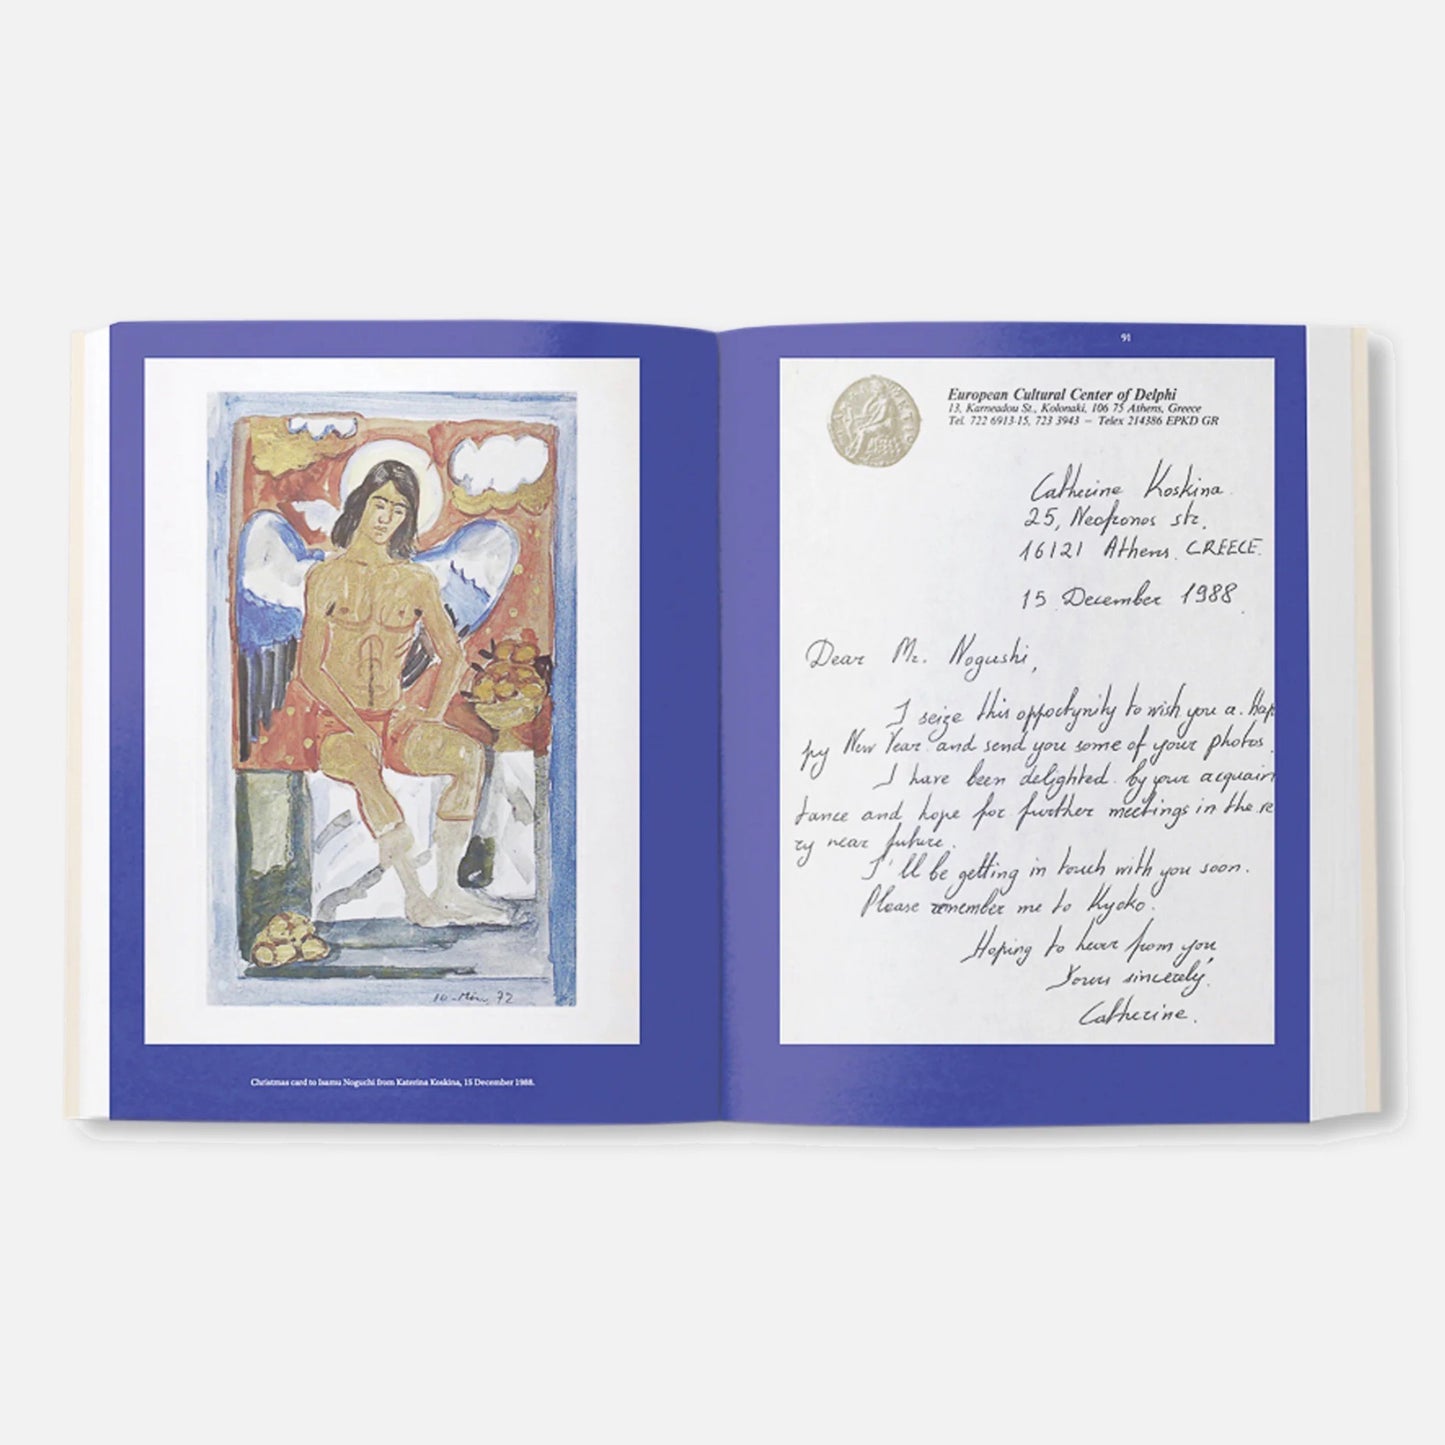 10-Μάη 72
Christmas card to Isamu Noguchi from Katerina Koskina, 15 December 1988.
91
European Cultural Center of Delphi
13, Karneadou St., Kolonaki, 106 75 Athens, Greece
Tel. 722 6913-15, 723 3943 – Telex 214386 EPKD GR
Catherine Koskina.
25, Neofronos str.
16121 Athens. GREECE.
15 December 1988.
Dear Mr. Nogushi,
I seize this opportynity to wish you a. Hap
py New Year and send you some of your photos.
I have been delighted. by your acquain
tance and hope for further meetings in the ve
ry near future.
I'll be getting in touch with you soon.
Please remember me to Kyoko.
Hoping to hear from you
Yours sincerely,
Catherine.